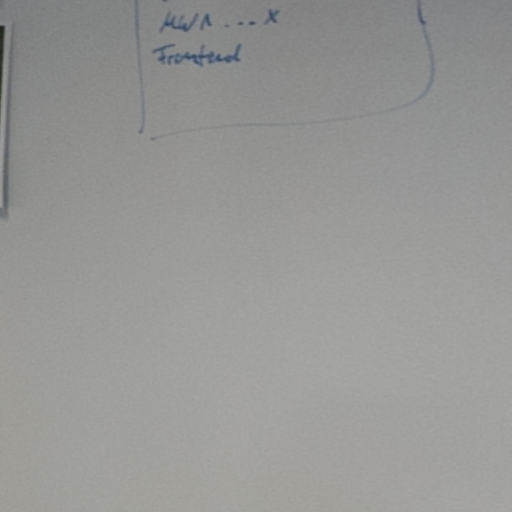 HW1...X
Frontend